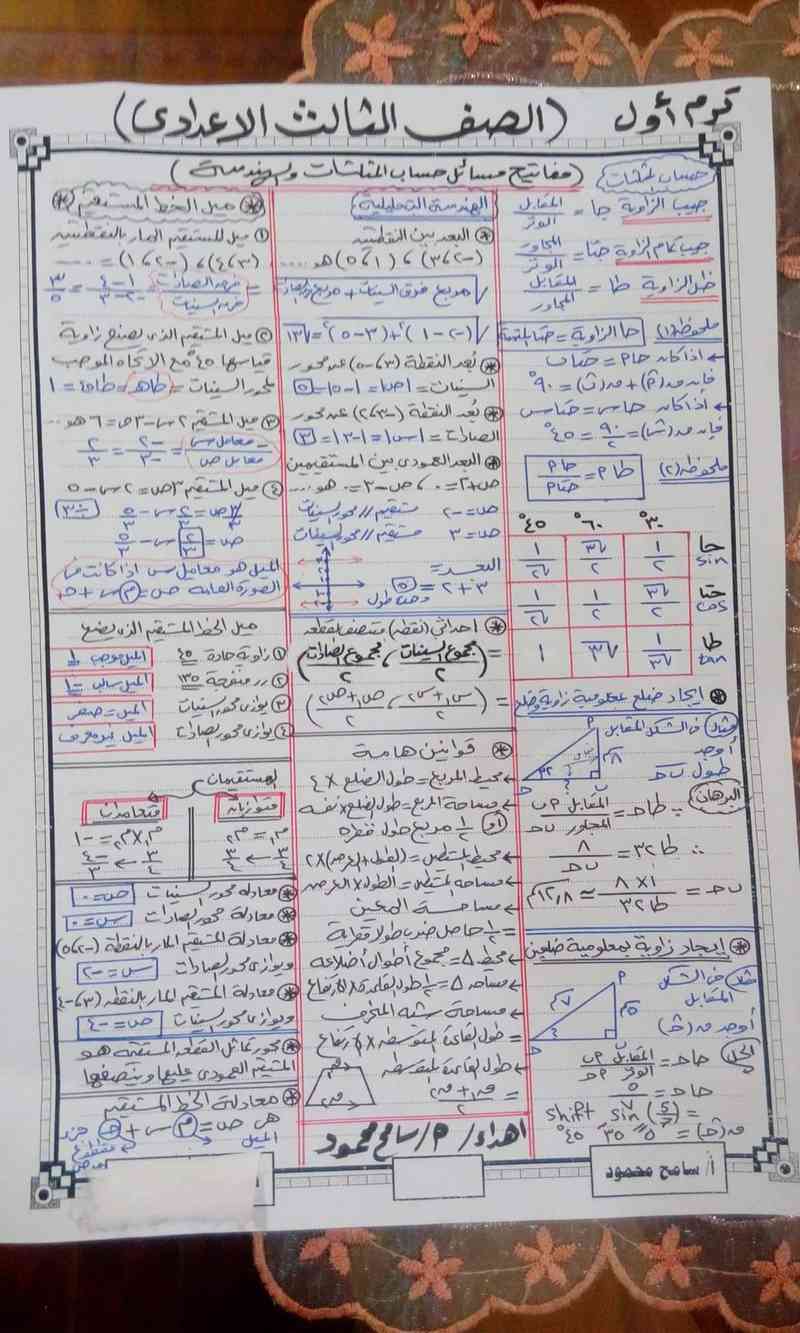 ترم أول (الصف الثالث الاعدادى)
(مفاتيح مسائل حساب المثلثات والهندسة)
حساب المثلثات
جيب الزاوية جا = المقابل / الوتر
جيب تمام الزاوية جتا = المجاور / الوتر
ظل الزاوية طا = المقابل / المجاور
ملحوظة (١) جا الزاوية = جتا المتممة
← اذا كان جا م = جتا ب
فإن ق(م) + ق(ب) = ٩٠°
← اذا كان جا س = جتا س
فإن ق(س) = ٩٠ / ٢ = ٤٥°
ملحوظة (٢) طا م = جا م / جتا م
٣٠° ٦٠° ٤٥°
جا sin ١/٢ √٣/٢ ١/√٢
جتا cos √٣/٢ ١/٢ ١/√٢
طا tan ١/√٣ √٣ ١
* ايجاد ضلع بمعلومية زاوية وضلع
مثال فى الشكل المقابل
أوجد
طول ب ح
م
٨
٣٢
ب
ح
البرهان
∵ طا ح = المقابل م ب / المجاور ب ح
∴ طا ٣٢ = ٨ / ب ح
ب ح = ١×٨ / طا ٣٢ ≈ ١٢,٨ سم
* إيجاد زاوية بمعلومية ضلعين
مثال فى الشكل
المقابل
أوجد ق(ح)
م
٧
٥
ح
الحل جا ح = المقابل م ب / الوتر م ح
جا ح = ٥ / ٧
= shift sin (٥/٧)
ق(ح) = ٥ ٣٥ ٤٥°
أ/ سامح محمود
الهندسة التحليلية
* البعد بين النقطتين
(-٢، ٣)، (١، ٥) هو ...
√ مربع فرق السينات + مربع فرق الصادات
√(-٢-١)² + (٣-٥)² = √١٣
* بُعد النقطة (٣، -٥) عن محور
السينات = |ص| = |-٥| = ٥
* بُعد النقطة (-٣، ٢) عن محور
الصادات = |س| = |-٣| = ٣
* البعد العمودى بين المستقيمين
ص+٢=٠، ص-٣=٠ هو ....
ص = -٢ مستقيم // محور السينات
ص = ٣ مستقيم // محور السينات
البعد =
٣+٢ = ٥
وحدة طول
* احداثى (نقطة) منتصف قطعة
= (مجموع السينات / ٢، مجموع الصادات / ٢)
= (س١+س٢ / ٢، ص١+ص٢ / ٢)
* قوانين هامة
← محيط المربع = طول الضلع × ٤
← مساحة المربع = طول الضلع × نفسه
أو ١/٢ مربع طول قطره
← محيط المستطيل = (الطول + العرض) × ٢
← مساحة المستطيل = الطول × العرض
← مساحة المعين
= ١/٢ حاصل ضرب طولا قطرية
← محيط △ = مجموع أطوال أضلاعه
← مساحة △ = ١/٢ طول القاعدة × الارتفاع
← مساحة شبه المنحرف
= طول القاعدة المتوسطة × الارتفاع
← طول القاعدة المتوسطة
= ق١ + ق٢ / ٢
ق١
ق٢
اهداء / م / سامح محمود
* ميل الخط المستقيم *
① ميل المستقيم المار بالنقطتين
(٣، ٤)، (-٢، ١) = .....
= فرق الصادات / فرق السينات = ١-٤ / -٢-٣ = ٣/٥
② ميل المستقيم الذى يصنع زاوية
قياسها ٤٥° مع الاتجاه الموجب
لمحور السينات = طا هـ = طا ٤٥ = ١
③ ميل المستقيم ٢س-٣ص=٦ هو ..
= -معامل س / معامل ص = -٢ / -٣ = ٢/٣
④ ميل المستقيم ٣ص = ٢س-٥
÷ ٣
٣/٣ ص = ٢/٣ س - ٥/٣
ص = ٢/٣ س - ٥/٣
الميل هو معامل س اذا كانت فى
الصورة العامة ص = م س + حـ
ميل الخط المستقيم الذى يصنع
① زاوية حادة ٤٥ الميل موجب ١
② // منفرجة ١٣٥ الميل سالب -١
③ يوازى محور السينات الميل = صفر
④ يوازى محور الصادات الميل غير معرف
المستقيمان
متوازيان متعامدان
م١ = م٢ م١ × م٢ = -١
٣/٤ ← ٣/٤ ٣/٤ ← -٤/٣
* معادلة محور السينات ص=٠
* معادلة محور الصادات س=٠
* معادلة المستقيم المار بالنقطة (-٢، ٥)
ويوازى محور الصادات س=-٢
* معادلة المستقيم المار بالنقطة (٣، -٤)
ويوازى محور السينات ص=-٤
* محور تماثل القطعة المستقيمة هو
المستقيم العمودى عليها وينصفها
* معادلة الخط المستقيم
هى ص = م س + حـ
الميل